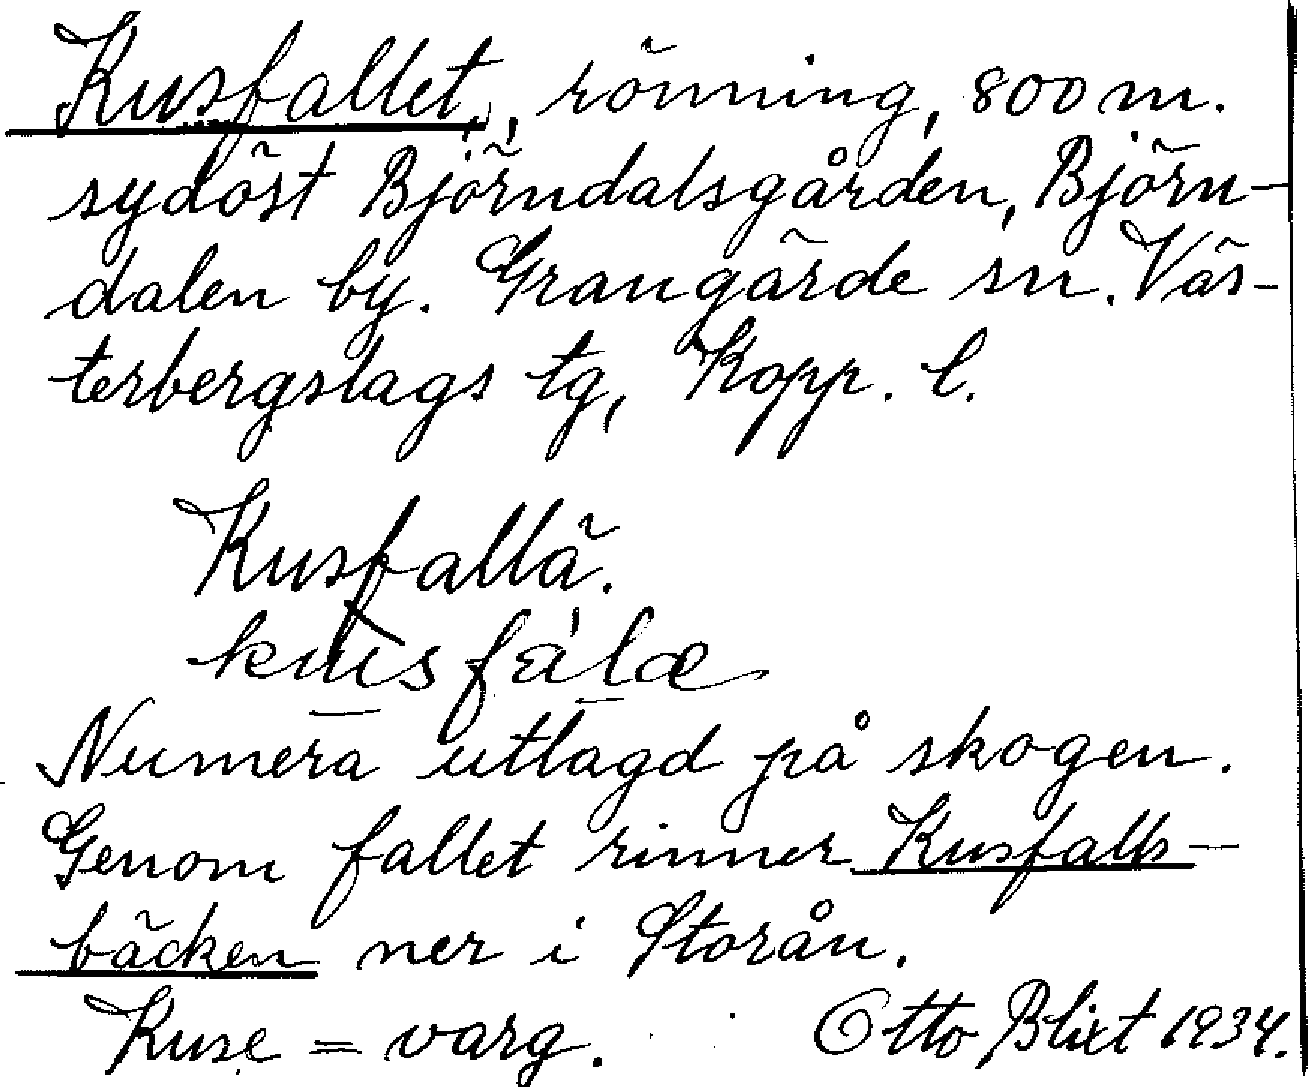 Kusfallet, rönning, 800 m.
sydöst Björndalsgården, Björn-
dalen by. Grangärde sn. Väs-
terbergslags tg, Kopp. l.
Kusfallä.
kusfalæ
Numera utlagd på skogen.
Genom fallet rinner Kusfalls-
bäcken ner i Storån.
Kuse = varg. Otto Blixt 1934.